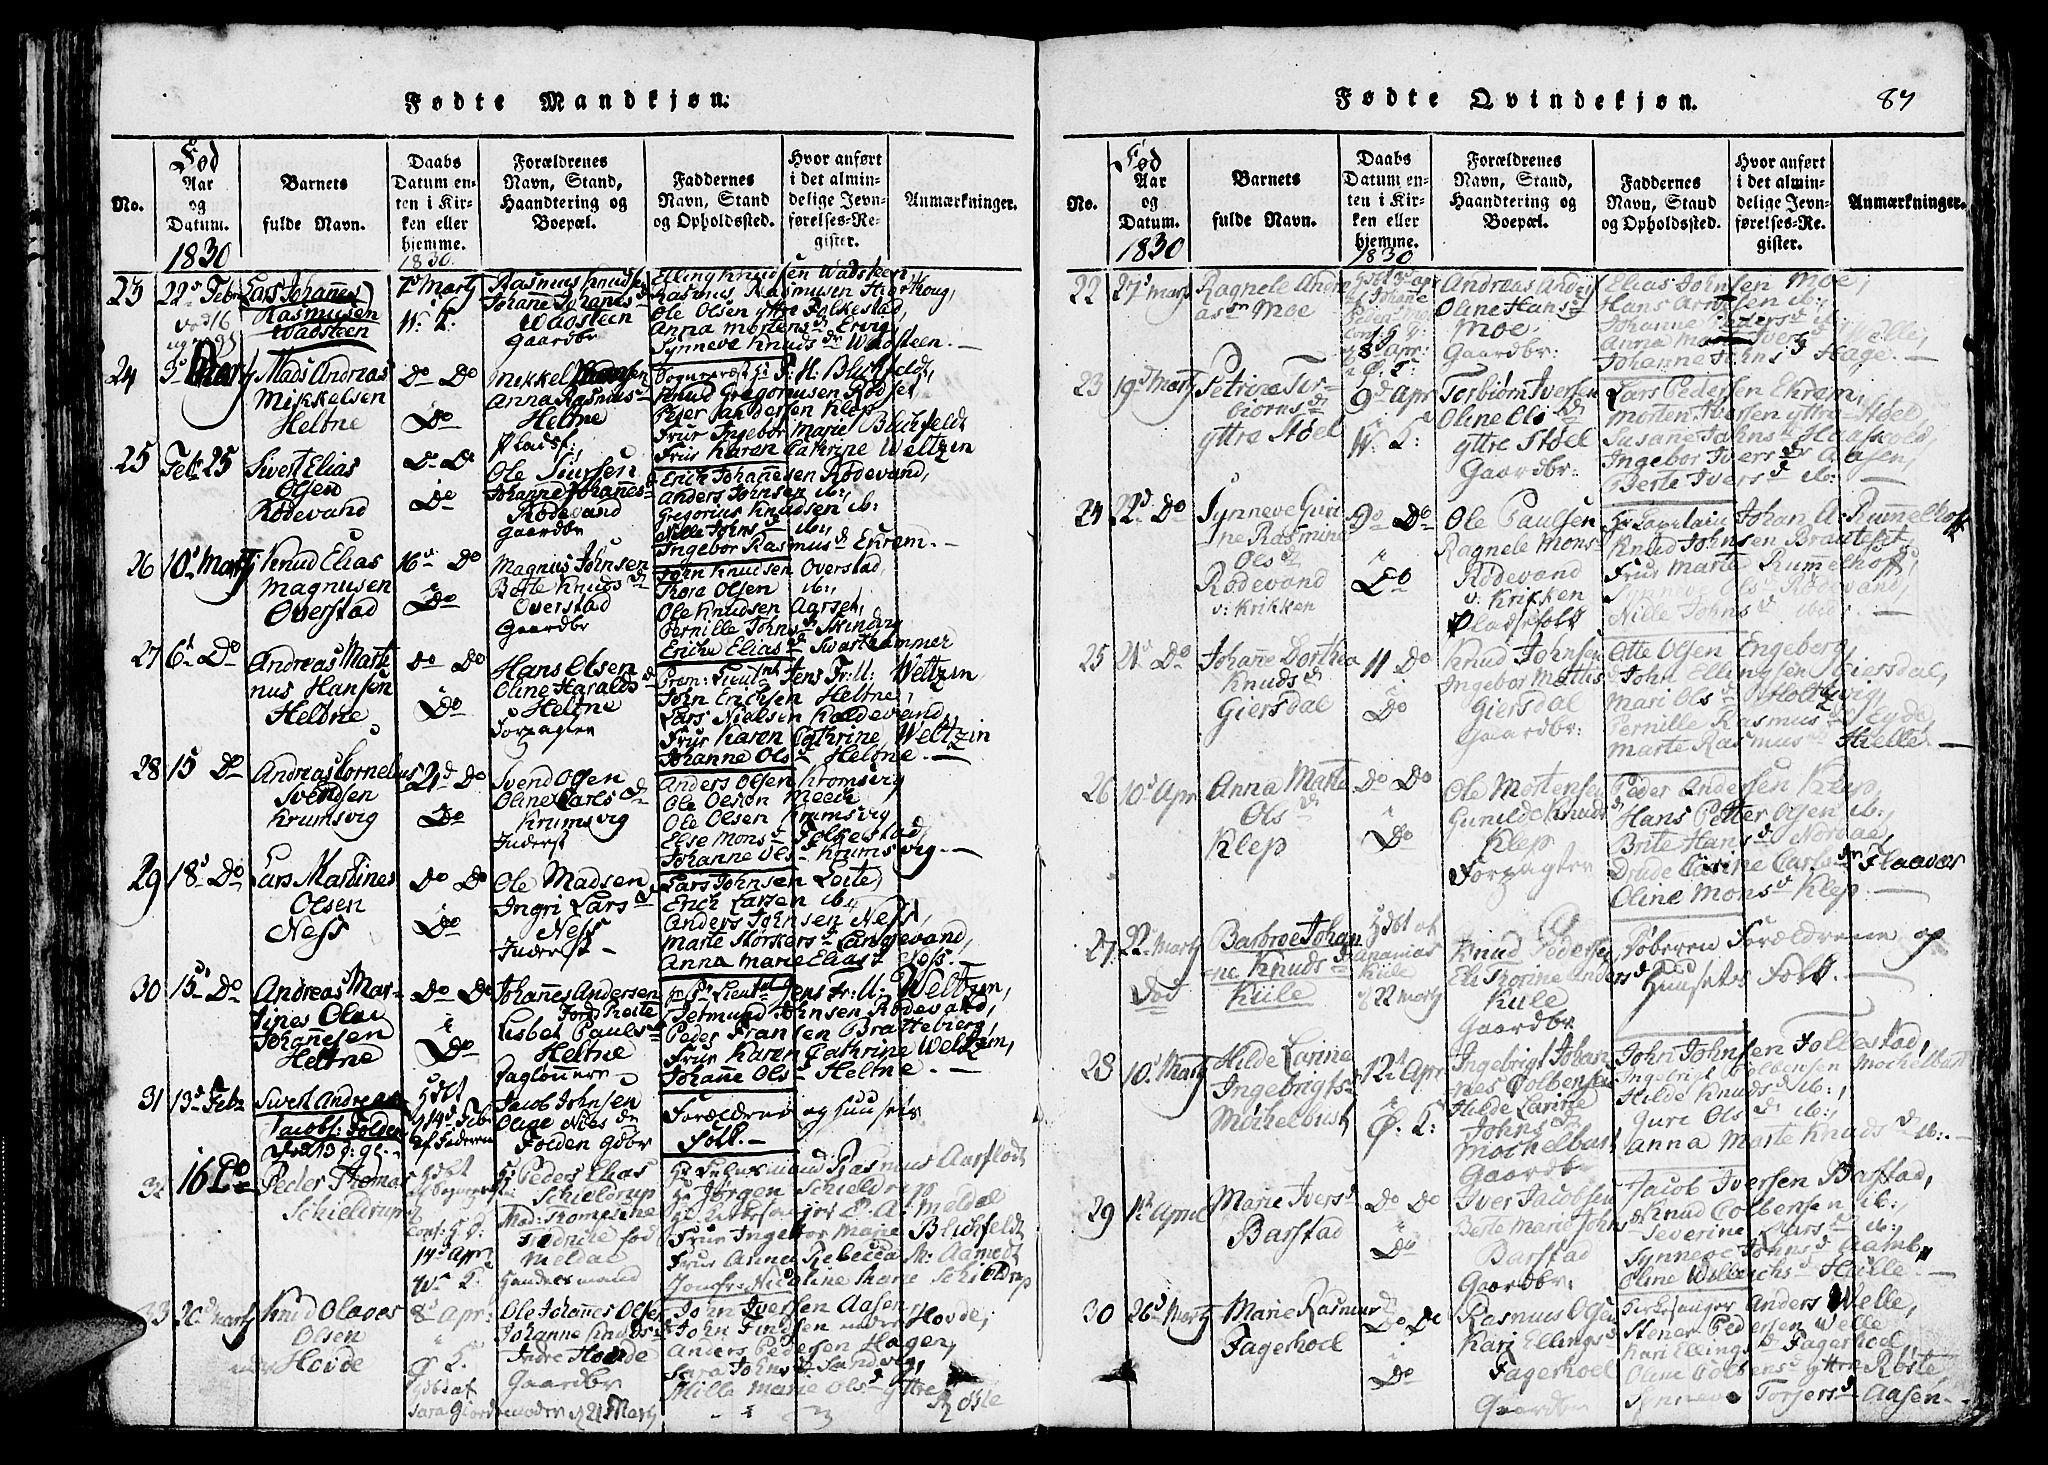 Fødte Mandkjøn:
No.
Fød
Aar
og
Datum.
1830
Barnets
fulde Navn.
Daabs
Datum en-
ten i Kir-
ken eller
hjemme.
1830
Forældrenes
Navn, Stand,
Haandtering og
Boepæl.
Faddernes
Navn, Stand
og Opholdssted.
Hvor anført
i det almin-
delige Jevn-
førelses-Re-
gister.
Anmærkninger.
23 22d Febr
Lars Johannes
Rasmusen
Wadsteen
7d Marty
W: K:
Rasmus Knuds
Johane Johanes d
Wadsteen
Gaardbr
Elling Knudsen Wadsteen,
Rasmus Rasmusen
Ole Olsen yttre Folkestad,
Anna Mortens d Ervig
Synneve Knuds dr Wadsteen.
24
Mads Andreas
Mikkelsen
Heltne
Do Do
Do
Mekkel Hansen
Anna Rasmus d
Heltne
Pladsf:
P: H: Blichfeldt,
Knud Gregoriusen Rødset
Peter Landersen Klep
Frue Ingebor Marie Blichfeldt
Frue Karen Cathrine Weltzin
25 Feb: 25
Sivert Elias
Olsen
Rødevand
Do Do
Do
Ole Siursen
Johanne Johannes d
Rødevand
Gaardbr
Erich Johanesen Rødevand,
Anders Johnsen ib:,
Gregorius Knudsen ib:
Nille Johns d ib:,
Ingebor Rasmus d Ekrem. —
26 10d Marty
Knud Elias
Magnusen
Overstad
16d Do
Do
Magnus Johnsen
Berte Knuds d
Overstad
Gaardbr
John Knudsen Overstad,
Tore Olsen ib:,
Ole Knudsen Aarset,
Pernille Johns d Skinding
Ericka Elias d Svarthammer
27 6d Do
Andreas Marte
nus Hansen
Heltne
Do Do
Do
Hans Olsen
Oline Haralds d
Heltne
Forpagter
Prem: Lieudnt Jens Fr: U: Weltzin,
John Erichsen Heltne,
Lars Nielsen Kaldevand,
Frue Karen Cathrine Weltzin
Johanne Ols d Heltne. —
28 15 Do
Andreas Cornelius
Svendsen
Krumsvig
21d Do
Do
Svend Olsen
Oline Carls d
Krumsvig
Inderst
Anders Olsen Kromsvig
Ole Olsen Meek
Ole Olsen Krumsvig
Else Mons d Folkestad,
Johanne Ols d Krumsvig. —
29 18d Do
Lars Martines
Olsen
Ness
Do Do
Do
Ole Madsen
Ingri Lars d
Ness
Inderst —
Lars Johnsen Leite,
Erich Larsen ib:,
Anders Johnsen Ness,
Marte Størkers d Langevand,
Anna Marie Elias d
30 15d Do
Andreas Mar-
tines Olai
Johannesen
Heltne
Do Do
Do
Johannes Andersen
Lisbet Pauls d
Heltne
Daglønnere
Pr: Lieutnt Jens Fr: U: Weltzin,
Detmund Johnsen Rødevand,
Peder Fransen Bratteberg,
Frue Karen Cathrine Weltzin,
Johanne Ols d Heltne. —
31 13d Febr
Sivert Andreas
Jacobs: Folden
Hdbt
14d Feb:
af Faderen
Jacob Johnsen
Olige Nies dr
Folden Gdbr
Forældrene og Huusets
Folk. —
32 16 Do
Peder Thomas
Schieldrup
14d Apr:
W: K:
Hr Peder Elias
Schieldrup
Mad: Thomasine
fød
Meldal
Handelsmand
Rasmus Aarflodt
Hr Jørgen Schieldrup
E: A: Meldal
Frue Ingebor Marie Blichfeldt
Frue Anna Rebecca M: Aamodt
Jomfr: Nicoline Marie Schieldrup
33
Knud Olaves
Olsen
Hovde
8d Apr:
Ø K:
Ole Johannes Olsen
Johanne Knuds d
Indre Hovde
Gaardbr
John Iversen Aasen,
John Findsen nedre Hovde,
Anders Pedersen Hagen,
Sara Johns d Sandvig,
Nille Marie Ols d yttre
Røste
Fødte Qvindekjøn.
87
No.
Fød
Aar
og
Datum.
1830
Barnets
fulde Navn.
Daabs
Datum en-
ten i Kir-
ken eller
hjemme.
1830
Forældrenes
Navn, Stand,
Haandtering og
Boepæl.
Faddernes
Navn, Stand
og Opholdssted.
Hvor anført
i det almin-
delige Jevn-
førelses-Re-
gister.
Anmærkninger.
22 27d Mart
Ragnele Andre
as dr Moe
8d Apr:
Ø: K:
Andreas
Oline Hans d
Moe
Gaardbr:
Elias Johnsen Moe,
Hans Arntsen ib:,
Johanne Peders d ib:
Anna Ivers d Welle,
Johanne Johns d Hage. —
23 19d Marty
Petrine Tor-
biørns dr
yttre Støel
9d Apr
W: K:
Torbiørn Iversen
Oline Ols dr
yttre Støel
Gaardbr:
Lars Pedersen Ekrem,
Morten Iversen yttre Støel,
Susane Johns d Haaskold,
Ingebor Ivers dr Aasen,
Berte Ivers d ib: —
24 22d Do
Synneve Guri
ne Rasmine
Ols dr
Rødevand
v: Krikken
9d Do
Do
Ole Paulsen
Ragnele Mons d
Rødevand
v: Krikken
Pladsefolk
Hr Capitain Johan A: Rummelhoff
Knud Johnsen Brauteset,
Frue Marte Rummelhoff,
Synneve Ols d Rødevand,
Nille Johns d ibid: —
25 21d Do
Johane Dorthea
Knuds d
Giersdal
11 Do
Do
Knud Johnsen
Ingebor Mattis d
Giersdal
Gaardbr:
Otte Olsen Engeberg,
John Ellingsen Giersdal,
Mari Ols d Holtzvig,
Pernille Rasmus d Eyde,
Marte Rasmus d Hielle —
26 10d Apr
Anna Marte
Ols dr
Klep
Do Do
Do
Ole Mortensen
Gunilde Knuds d
Klep
Forpagter
Peder Andersen Klep,
Hans Petter Olsen ib:,
Brite Hans d Nordal,
Drude Carine Carls dr Flaavær
Oline Mons d Klep. —
27 22d Marty
Død
Barbroe Johan
ne Knuds d
Kiile
Hdbt af
Ananias
Kiile
d 22 Marty
Knud Pedersen
Eli Thorine Anders d
Kiile
Gaardbr
Døberen Forældrene og
Huusets Folk. —
28 10d Marty
Hilde Larine
Ingebrigts d
Mochelbust
12d Apr
Ø: K:
Ingebrigt Johan
nes Colbensen
Hilde Larine
Johns d
Mochelbust
Gaardbr
John Johnsen Follestad,
Ingebrigt Colbensen Mochelbust
Hilde Knuds d ib:,
Guri Ols d ib:,
Anna Marte Knuds d ib:. —
29 1d April
Marie Ivers d
Barstad
Do Do
Do
Iver Jacobsen
Berte Marie Johns d
Barstad
Gaardbr:
Jacob Iversen Barstad,
Knud Colbensen ib:
Severine Lars d ib:
Synneve Johns d Aamb
Oline Willochs d Hielle —
30 26d Marty
Marie Rasmus d
Fagerhoel
Do Do
Do
Rasmus Olsen
Kari Ellings d
Fagerhoel
Gaardbr
Kirkesanger Anders Welle,
Stener Pedersen Welle
Kari Ellings d Fagerhoel
Oline Colbens d yttre Røste
Synneve Torgers d Aasen —